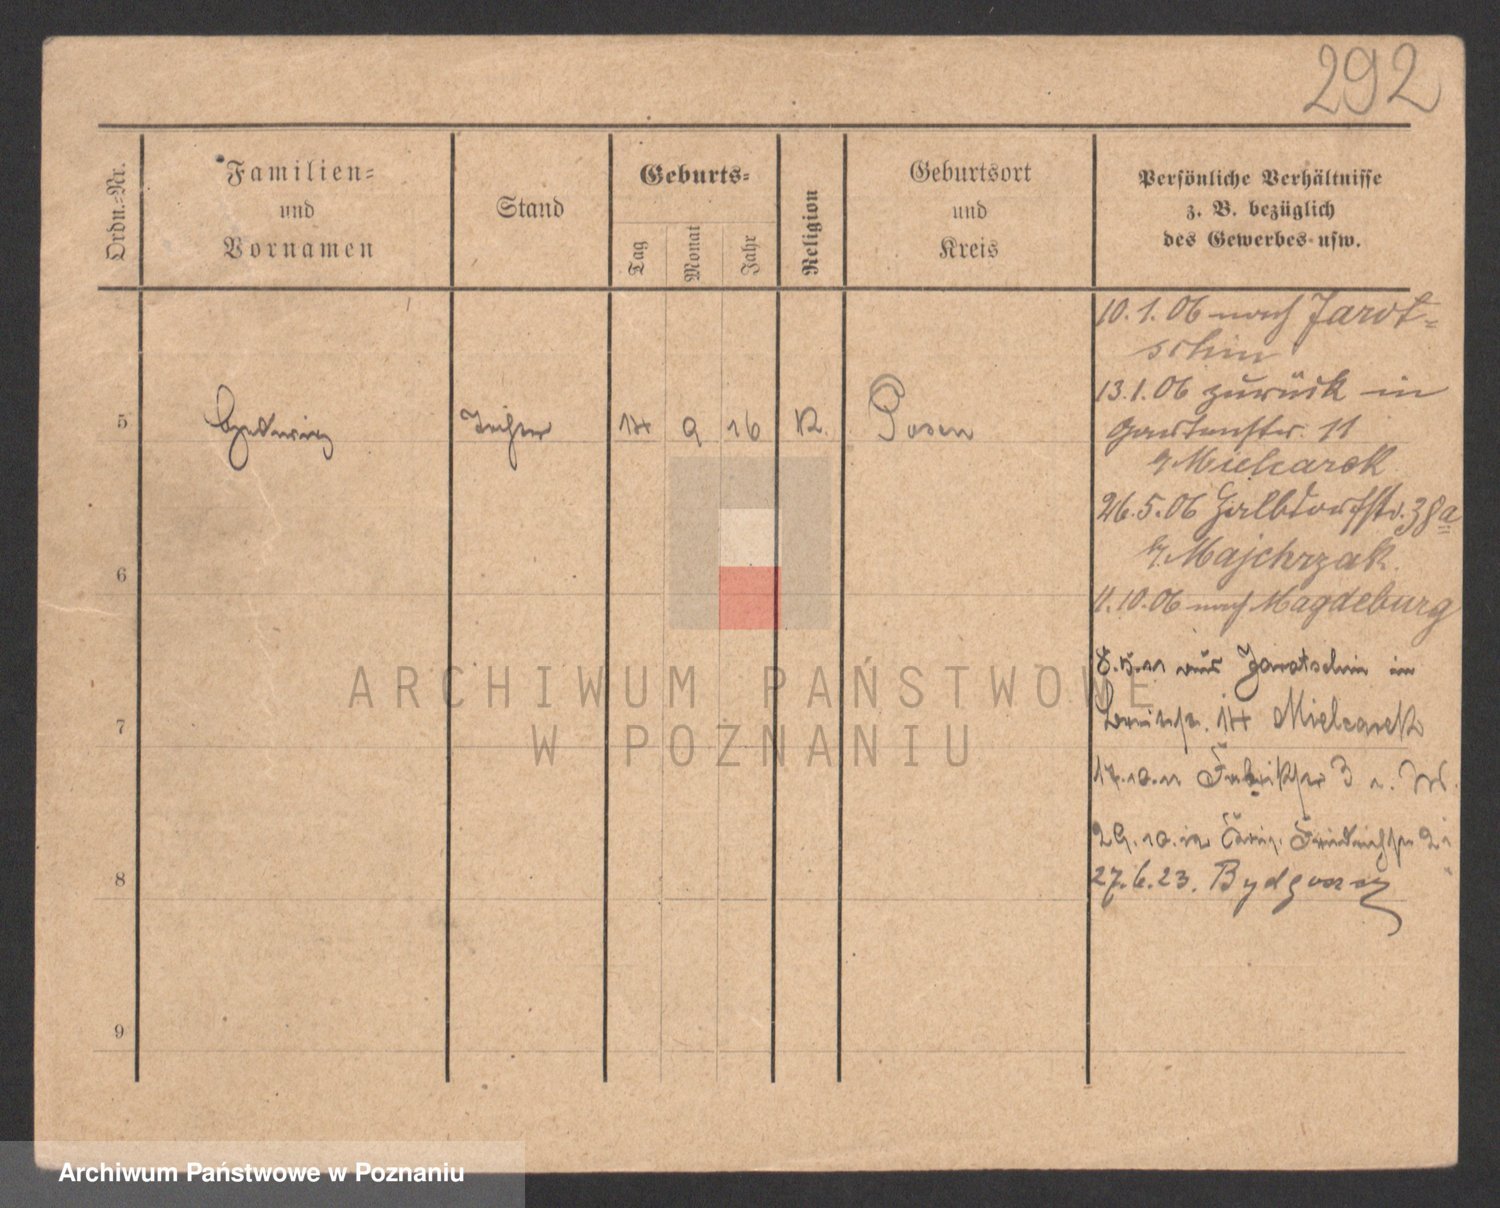 292
Ordn.-Nr.
Familien-
und
Vornamen
Stand
Geburts-
Tag
Monat
Jahr
Religion
Geburtsort
und
Kreis
Persönliche Verhältnisse
z. B. bezüglich
des Gewerbes usw.
10.1.06 nach Jarot-
schin
13.1.06 zurück in
5 Hedwig Tochter 14 9 16 K. Posen
Gartenstr. 11
b/ Mielcarek
26.5.06 Halbdorfstr. 38a
6
b/ Majchrzak
11.10.06 nach Magdeburg
8.5.11 aus Jarotschin in
7
14 Mielcarek
17.10.11 Fabrikstr 3
29.10.12 Friedrichstr
8
27.6.23. Bydgoszcz
9
ARCHIWUM PAŃSTWOWE
W POZNANIU
Archiwum Państwowe w Poznaniu